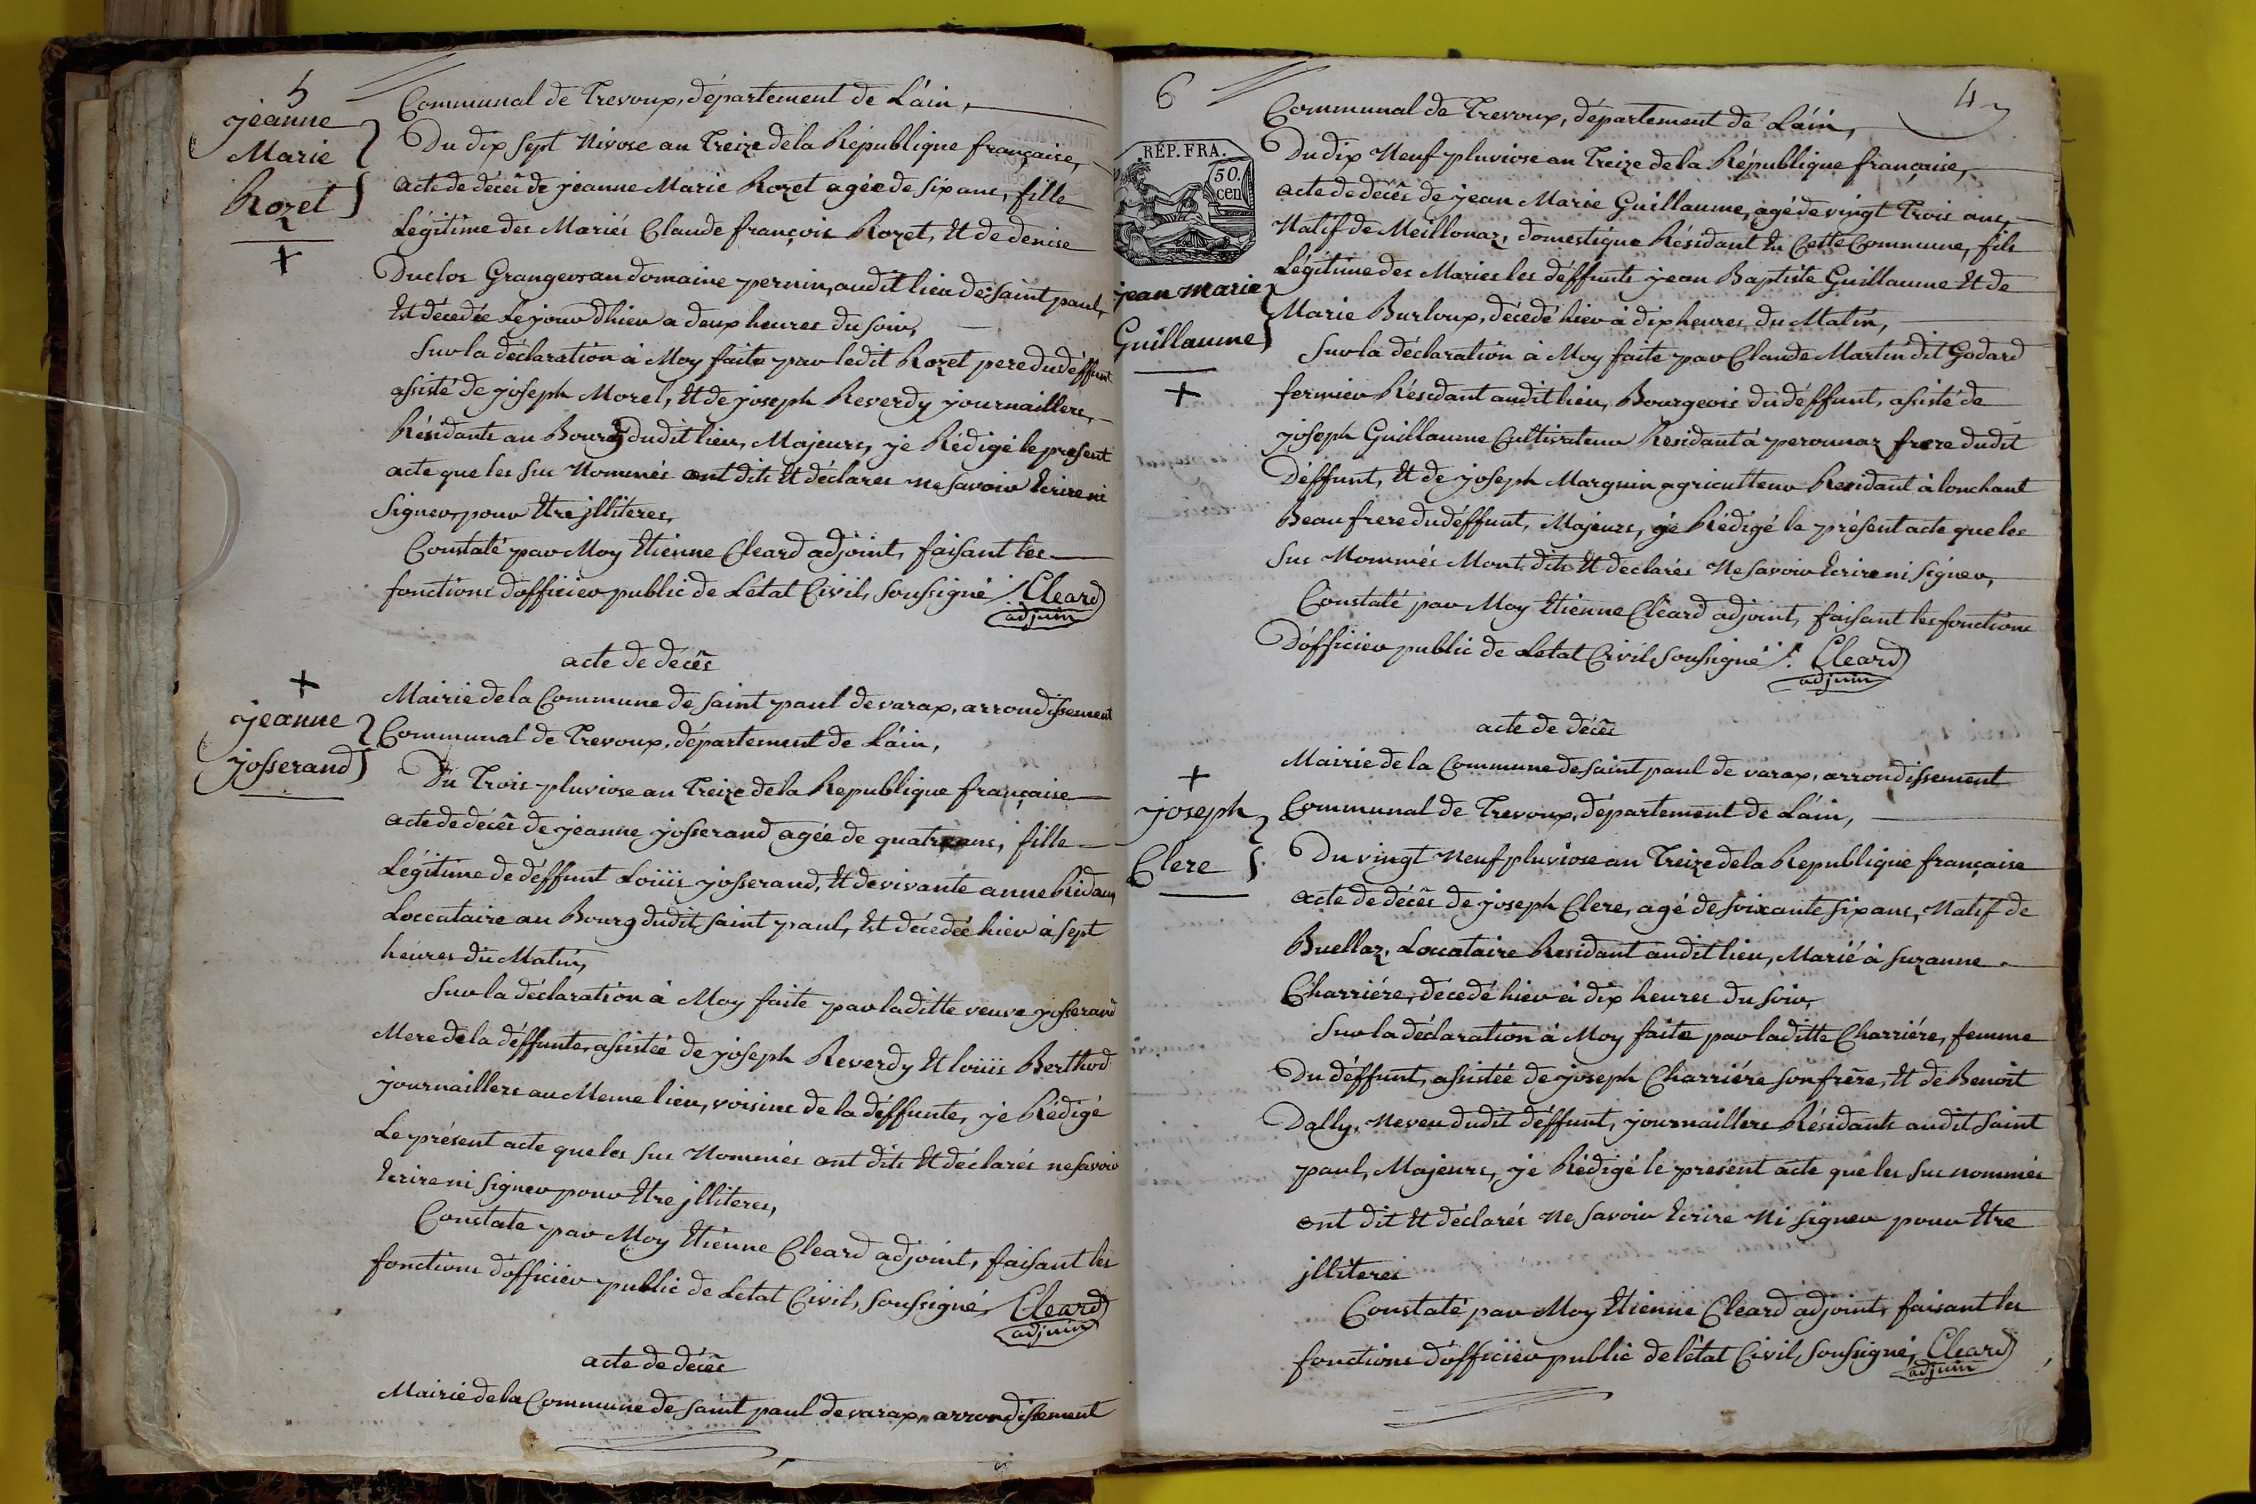 5
jeanne
Marie
Rozet
+
Communal de Trevoux, département de L'ain,
Du dix sept Nivose an Treize de la République française,
acte de décês de jeanne Marie Rozet agée de six ans, fille
Légitime des Mariés Claude françois Rozet, Et de denise
Duclos Grangers au domaine pernin, audit lieu de Saint paul,
Est décedée Le jour d'hier a deux heures du soir,
Sur la déclaration à Moy faite par ledit Rozet pere du déffunt
assisté de joseph Morel, Et de joseph Reverdy journaillers,
Résidants au Bourg dudit lieu, Majeurs, je Rédigé le present
acte que les sus Nommés ont dits Et déclarés ne savoir Ecrire ni
signer, pour Etre jlliteres,
Constaté par Moy Etienne Cleard adjoint, faisant les
fonctions d'officier public de L'état Civil, soussigné / Cleard
adjuin
acte de décês
+
jeanne
josserand
Mairie de la Commune de saint paul de varax, arrondissement
Communal de Trevoux, département de L'ain,
Du Trois pluviose an Treize de la Republique française
acte de décês de jeanne josserand agée de quatre ans, fille
Légitime de déffunt Loüis josserand, Et de vivante anne
Loccataire au Bourg dudit saint paul, Est décedée hier à sept
heures du Matin,
Sur la déclaration à Moy faite par laditte veuve josserand
Mere de la déffunte, assistée de joseph Reverdy Et loüis Berthod
journaillers au Meme lieu, voisins de la déffunte, je Rédigé
Le présent acte que les sus Nommés ont dits Et déclarés ne savoir
Ecrire ni signer pour Etre jlliteres,
Constate par Moy Etienne Cleard adjoint, faisant les
fonctions d'officier public de L'etat Civil, soussigné, Cleard
adjuin
acte de décês
Mairie de la Commune de saint paul de varax, arrondissement
6
4
RÉP. FRA.
50.
cen
jean marie
Guillaume
+
Communal de Trevoux, département de L'ain,
Du dix Neuf pluviose an Treize de la République française,
acte de décês de jean Marie Guillaume, agé de vingt Trois ans,
Natif de Meillonaz, domestique Résidant En Cette Commune, fils
Légitime des Maries les déffunts jean Baptiste Guillaume Et de
Marie Burloux, décedé hier à dix heures du Matin,
Sur la déclaration à Moy faite par Claude Martin dit Godard
fermier Résidant audit lieu, Bourgeois du déffunt, assisté de
joseph Guillaume Cultivateur Residant à peronnaz frere dudit
Déffunt, Et de joseph Marguin agriculteur Residant à lonchant
Beau frere du déffunt, Majeurs, je Rédigé le présent acte que les
sus Nommés Mont dits Et declarés Ne savoir Ecrire ni signer,
Constaté par Moy Etienne Cleard adjoint, faisant les fonctions
D'officier public de L'état Civil, soussigné /. Cleard
adjuin
acte de décês
+
joseph
Clere
Mairie de la Commune de saint paul de varax, arrondissement
Communal de Trevoux, département de L'ain,
Du vingt Neuf pluviose an Treize de la Republique française
acte de décês de joseph Clere, agé de soixante six ans, Natif de
Buellaz, Loccataire Residant audit lieu, Marié à suzanne
Charriére, decedé hier à dix heures du soir,
Sur la déclaration à Moy faite par laditte Charriére, femme
Du déffunt, assistée de joseph Charriére son frère, Et de Benoit
Dally, Neveu dudit déffunt, journaillers Résidants audit saint
paul, Majeurs, je Rédigé le présent acte que les sus nommés
ont dit Et déclarés Ne savoir Ecrire Ni signer pour Etre
jlliteres
Constaté par Moy Etienne Cleard adjoint, faisant les
fonctions d'officier public de l'état Civil soussigné, Cleard
adjuin